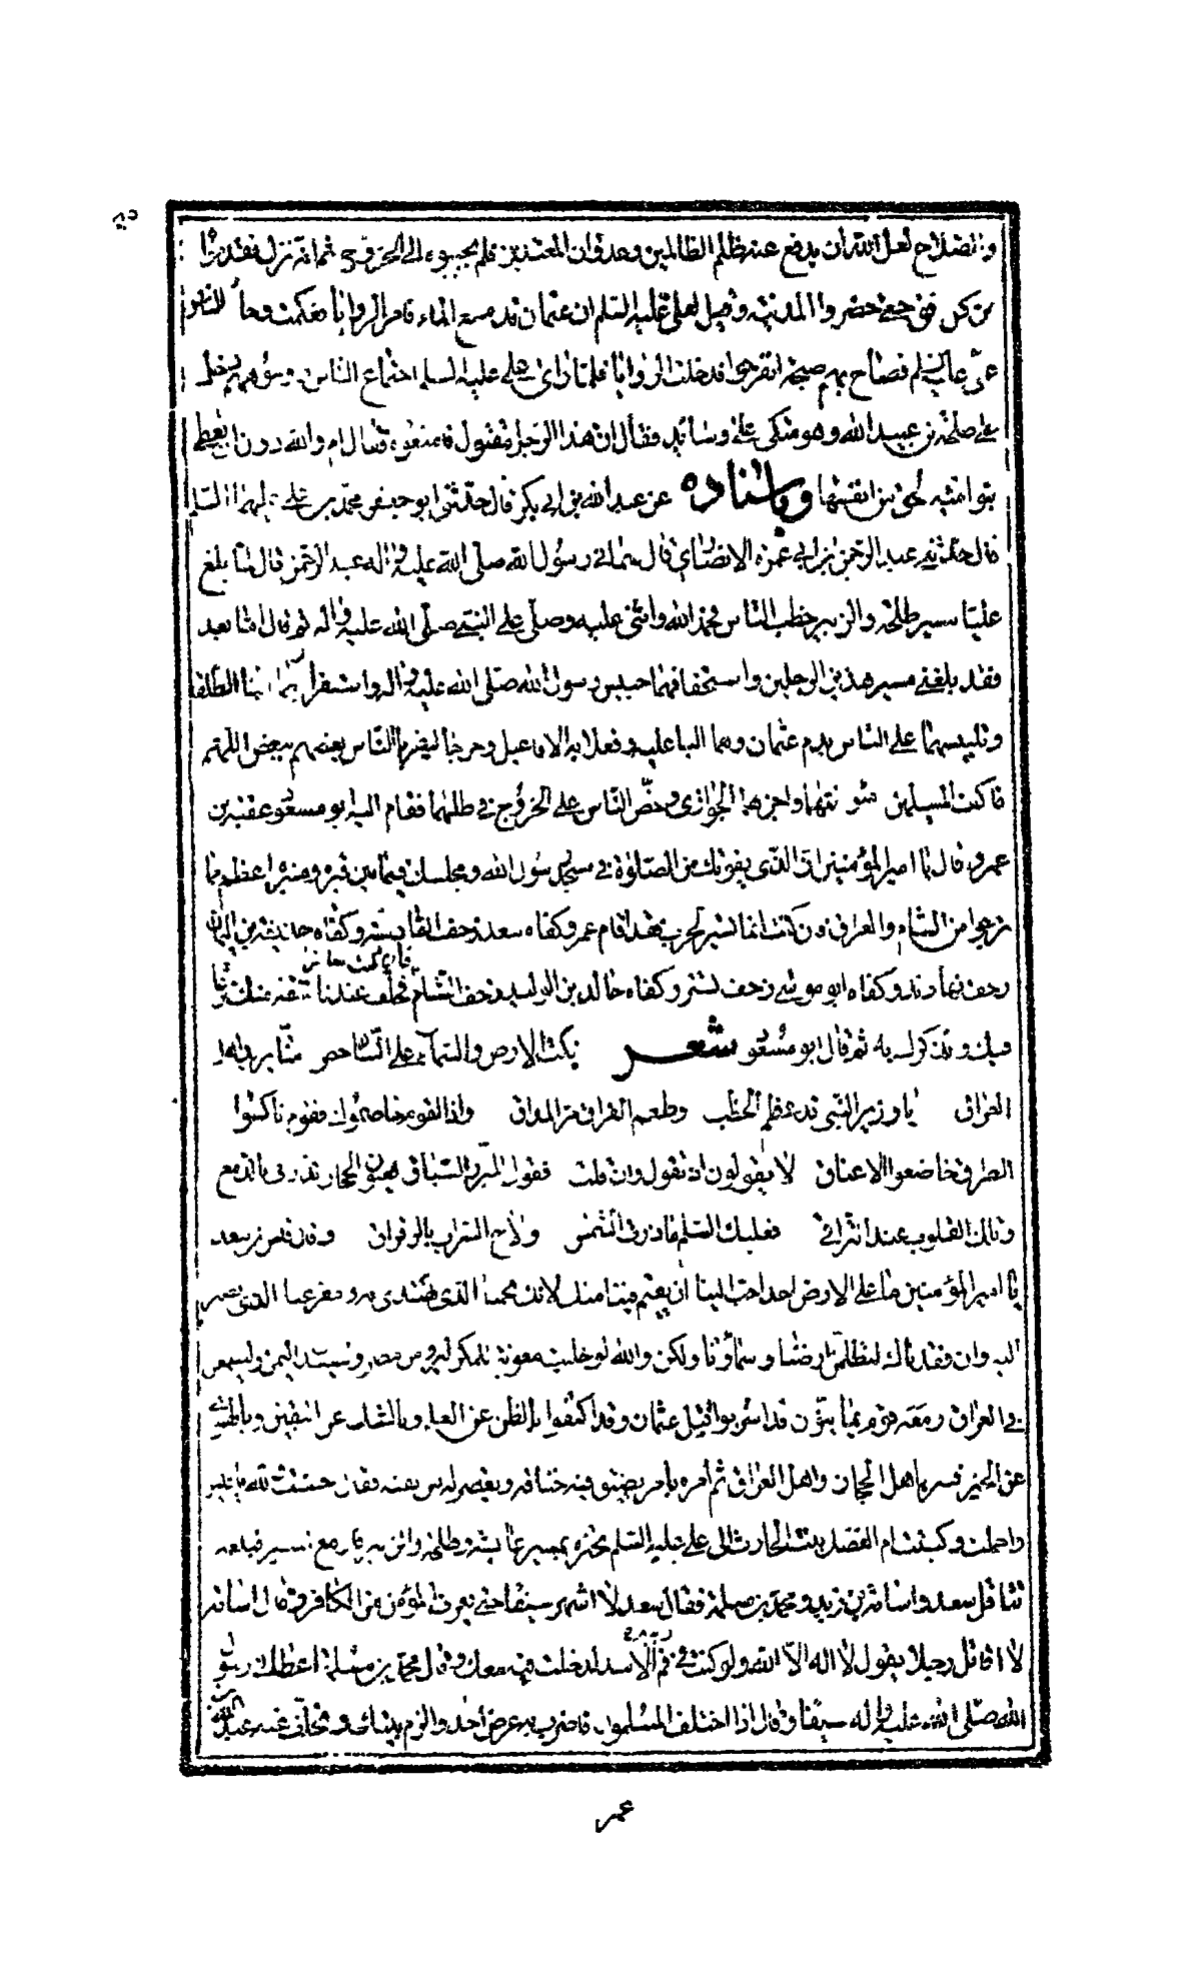 والصلاح لعل الله ان يدفع عنه ظلم الظالمين وعدوان المعتدين فلم يجيبوه الى الخروج ثم انه نزل فقد
من كل فج حتى حضروا المدينة وقيل لعلى عليه السلم ان عثمان قد منع الماء فامر بالروايا فعكمت وجاء للناس
على عليه السلم فصاح بهم صيحة انفرجوا فدخلت الروايا فلما راى على عليه السلم اجتماع الناس دخل
على طلحة بن عبيد الله وهو متكى على وسائد فقال ان هذا الرجل مقتول فامنعوه فقال ام والله دون ان تعطى
بنو امية الحق من انفسها وباسناده عن عبد الله بن ابى بكر قال حدثنى ابو جعفر محمد بن على عليهما السلم
قال حدثنى عبد الرحمن بن ابى عمرة الانصارى قال سمانى رسول الله صلى الله عليه واله عبد الرحمن قال لما بلغ
عليا مسير طلحة والزبير خطب الناس فحمد الله واثنى عليه وصلى على النبى صلى الله عليه واله ثم قال اما بعد
فقد بلغنى مسير هذين الرجلين واستخفافهما حبيس رسول الله صلى الله عليه واله واستفزازهما ابناء الطلقا
وتلبيسهما على الناس بدم عثمان وهما البا عليه وفعلا به الافاعيل وخرجا ليضربا الناس بعضهم ببعض اللهم
فاكف المسلمين مئونتهما واجزهما الجوازى وحض الناس على الخروج فى طلبهما فقام اليه ابو مسعود عقبة بن
عمرو قال يا امير المؤمنين ان الذى يفوتك من الصلوة فى مسجد رسول الله ومجلسك فيما بين قبره ومنبره اعظم مما
ترجوا من الشام والعراق فان كنت انما تسير لحرب فقد اقام عمر وكفاه سعد زحف القادسية وكفاه حذيفة بن اليمان
زحف نهاوند وكفاه ابو موسى زحف تستر وكفاه خالد بن الوليد زحف الشام فان كنت سائرا فخلف عندنا شقة منك نرعاها
فيك ونذكرك به ثم قال ابو مسعود شعر بكت الارض والسماء على الشاخص منا يريد اهل
العراق يا وزير النبى قد عظم الخطب وطعم الفراق مر المذاق واذا القوم خاصموك فقوم ناكسوا
الطرف خاضعوا الاعناق لا يقولون اذ تقول وان قلت فقول المبرز السباق فعيون الحجاز تذرف بالدمع
وتلك القلوب عند التراقى فعليك السلم ما ذرت الشمس ولاح السراب بالرقراق وقال قيس بن سعد
يا امير المؤمنين ما على الارض احد احب الينا ان يقيم فينا منك لانك نجمنا الذى نهتدى به ومفزعنا الذى نصير
اليه وان فقدناك لتظلمن ارضنا وسماؤنا ولكن والله لو خليت معوية للمكر ليرومن مصر وليفسدن اليمن وليطمعن
فى العراق ومعه قوم يمانيون قد اشربوا قتل عثمان وقد اكتفوا بالظن عن العلم وبالشك عن اليقين وبالهوى
عن الخير فسر باهل الحجاز واهل العراق ثم ارمه بامر يضيق فيه خناقه ويقصر له من نفسه فقال احسنت والله يا قيس
واجملت وكتبت ام الفضل بنت الحارث الى على عليه السلم تخبره بمسير عايشة وطلحة والزبير فازمع المسير فبلغه
تثاقل سعد واسامة بن زيد ومحمد بن مسلمة فقال سعد لا اشهر سيفا حتى يعرف المؤمن من الكافر وقال اسامة
لا اقاتل رجلا يقول لا اله الا الله ولو كنت فى فم الاسد لدخلت فيه معك وقال محمد بن مسلمة اعطانى رسول
الله صلى الله عليه واله سيفا وقال اذا اختلف المسلمون فاضرب به عرض احد والزم بيتك وتخلف عنه عبد الله بن
عمر